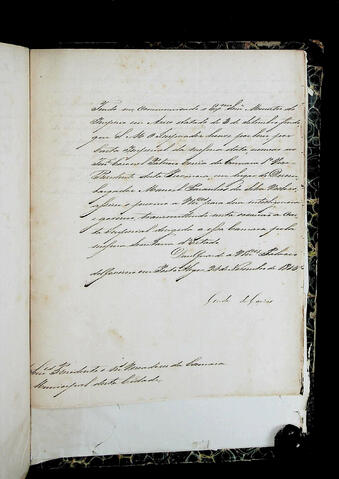 Tendo me communicado o Ex.mo Snr. Ministro do
Imperio em Aviso datado de 2 de Setembro findo
que S. M. O Imperador houve por bem por
Carta Imperial da mesma data nomear ao
Snr. Patricio Correa da Camara 1º Vice
Presidente desta Provincia em lugar do Dezem
bargador Manoel da Silva
assim o a V.mces para sua intelligencia
e governo, transmittindo nesta occasião a Car
ta Imperial dirigida a essa Camara pela
mesma Secretaria d'Estado.
Deos Guarde a V.mces Palacio
do Governo em Porto Alegre de Novembro de
Conde de Caxias
Snres. Presidente e Vereadores da Camara
Municipal desta Cidade